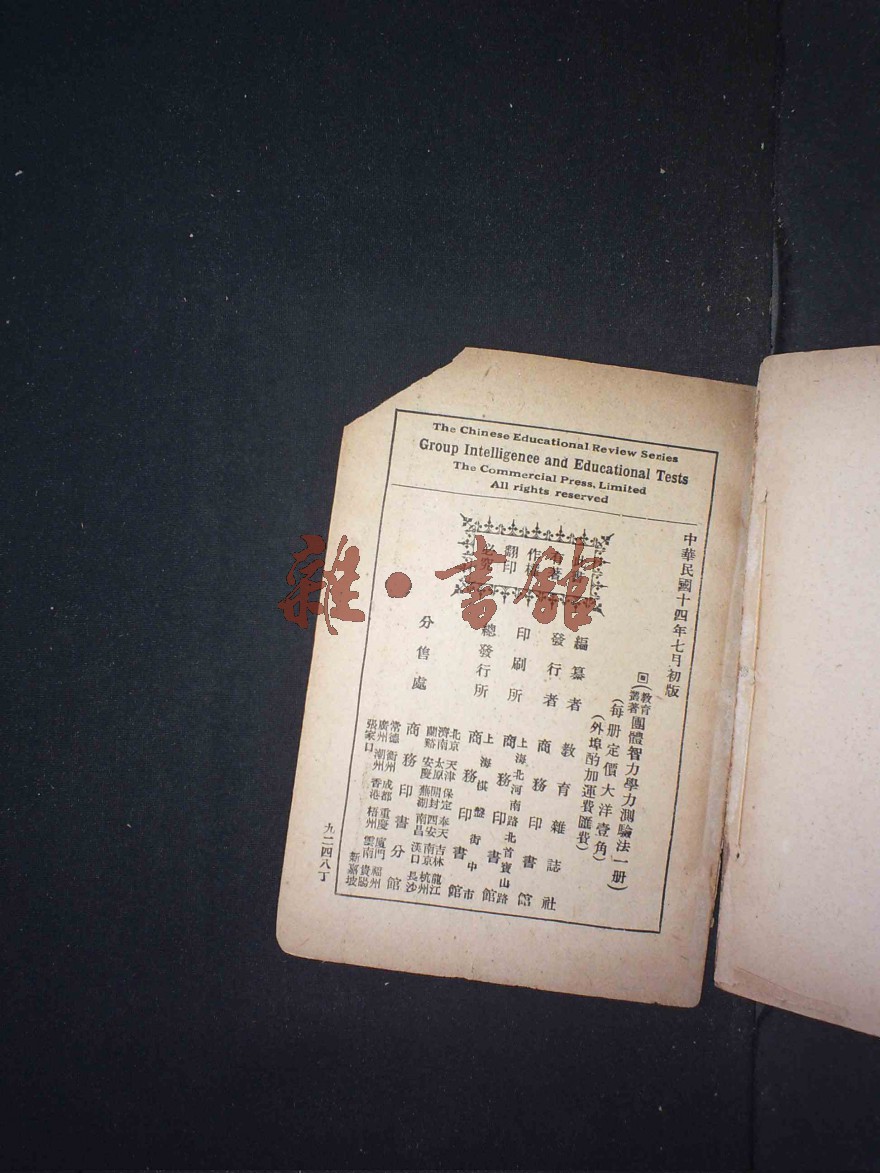 The Chinese Educational Review Series
Group Intelligence and Educational Tests
The Commercial Press, Limited
All rights reserved
中華民國十四年七月初版
(教育叢著)團體智力學力測驗法一册
(每册定價大洋壹角)
(外埠酌加運費匯費)
此書有著作權翻印必究
編纂者 教育雜誌社
發行者 商務印書館
印刷所 上海北河南路北首寶山路 商務印書館
總發行所 上海棋盤街中市 商務印書館
分售處 商務印書分館
北京 天津 保定 奉天 吉林 龍江
濟南 太原 開封 西安 南京 杭州
蘭谿 安慶 蕪湖 南昌 漢口 長沙
常德 衡州 成都 重慶 廈門 福州
廣州 潮州 香港 梧州 雲南 貴陽
張家口 新嘉坡
九二四八丁
雜·書館